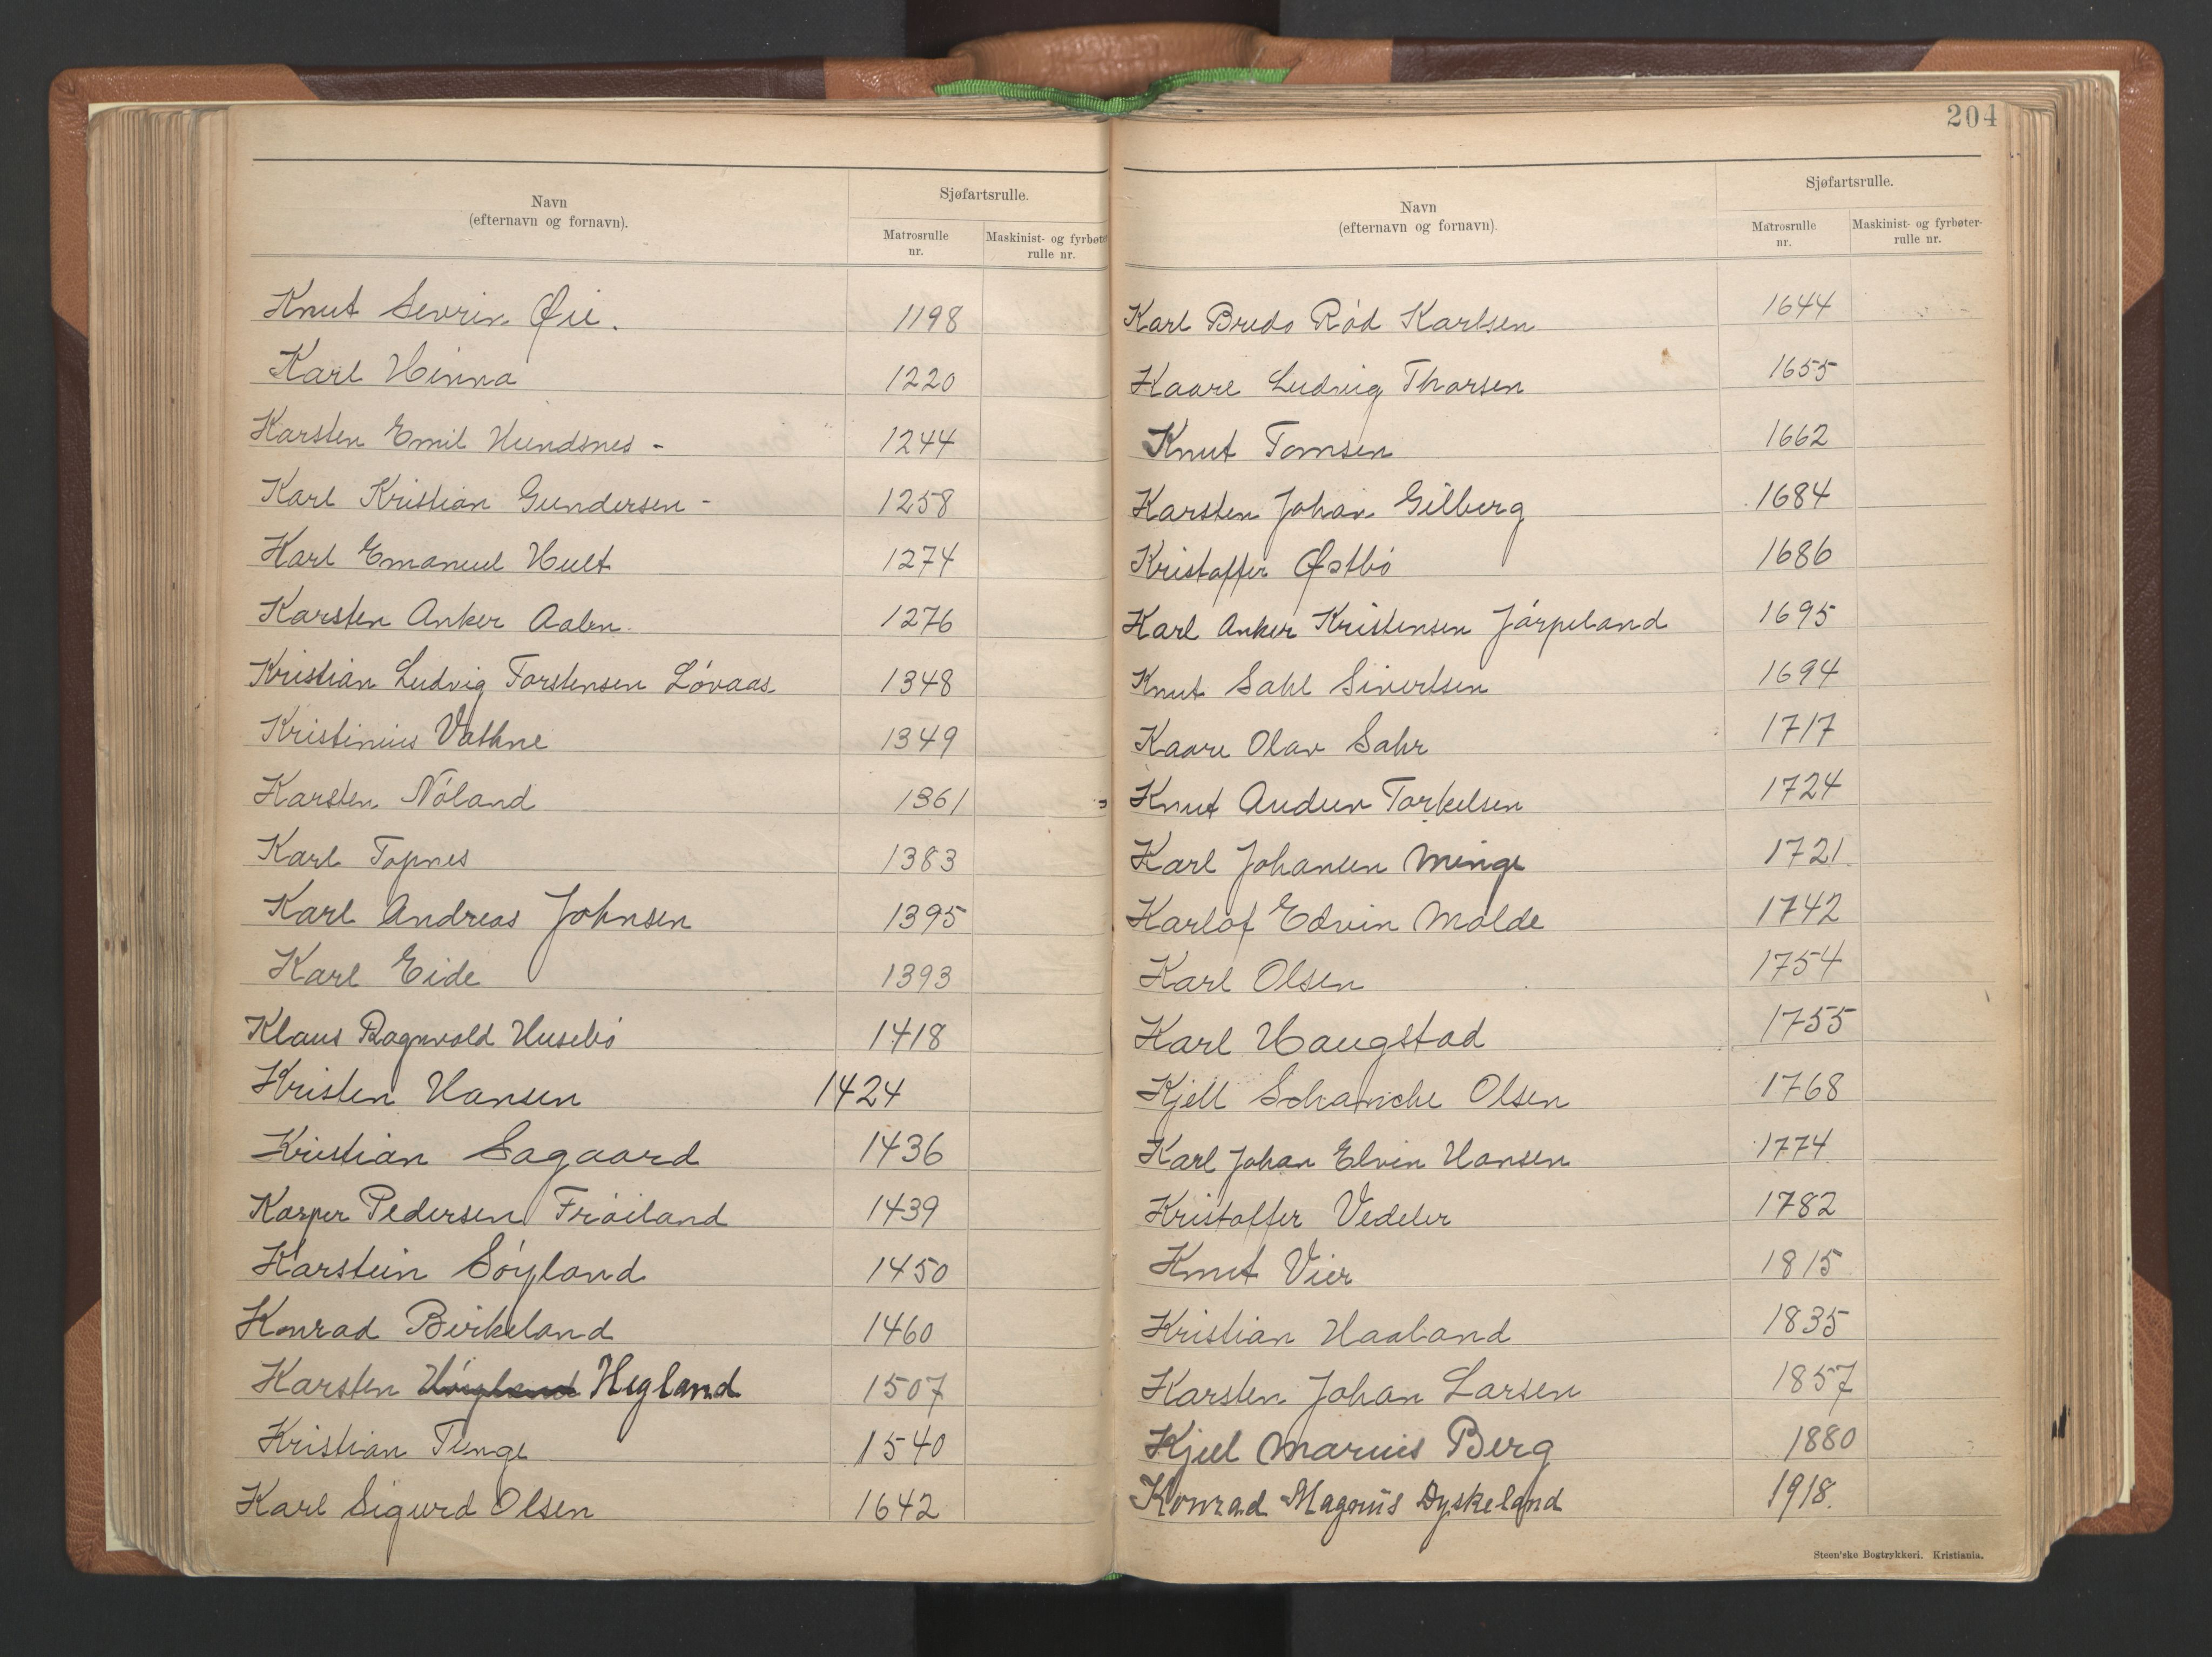 204
Navn
(efternavn og fornavn).
Sjøfartsrulle.
Matrosrulle nr.
Maskinist- og fyrbøter-rulle nr.
Knut Sevrin Øie. 1198
Karl Hinna 1220
Karsten Emil Hundsnes - 1244
Karl Kristian Gundersen - 1258
Karl Emanuel Hult 1274
Karsten Anker Aaben. 1276
Kristian Ludvig Torstensen Lóvaas 1348
Kristinius Vathne 1349
Karsten Nóland 1361
Karl Topnes 1383
Karl Andreas Johnsen 1395
Karl Eide 1393
Klaus Ragnvald Husebó 1418
Kristen Hansen 1424
Kristian Sagaard 1436
Kasper Pedersen Fróiland 1439
Karstein Sóyland 1450
Konrad Birkeland 1460
Karsten Hóigland Hegland 1507
Kristian Tunge 1540
Karl Sigurd Olsen 1642
Navn
(efternavn og fornavn).
Sjøfartsrulle.
Matrosrulle nr.
Maskinist- og fyrbøter-rulle nr.
Karl Bredo Ród Karlsen 1644
Kaare Ludvig Thorsen 1655
Knut Tomsen 1662
Karsten Johan Gilberg 1684
Kristoffer Østbó 1686
Karl Anker Kristensen Jórpeland 1695
Knut Sahl Sivertsen 1694
Kaare Olav Sahr 1717
Knut Audun Torkelsen 1724
Karl Johansen Minge 1721
Karlof Edvin Molde 1742
Karl Olsen 1754
Karl Haugstad 1755
Kjell Schanche Olsen 1768
Karl Johan Elvin Hansen 1774
Kristoffer Vedeler 1782
Knut Vier 1815
Kristian Haaland 1835
Karsten Johan Larsen 1857
Kjell Marius Berg 1880
Konrad Magnus Dyskeland 1918.
Steen'ske Bogtrykkeri. Kristiania.